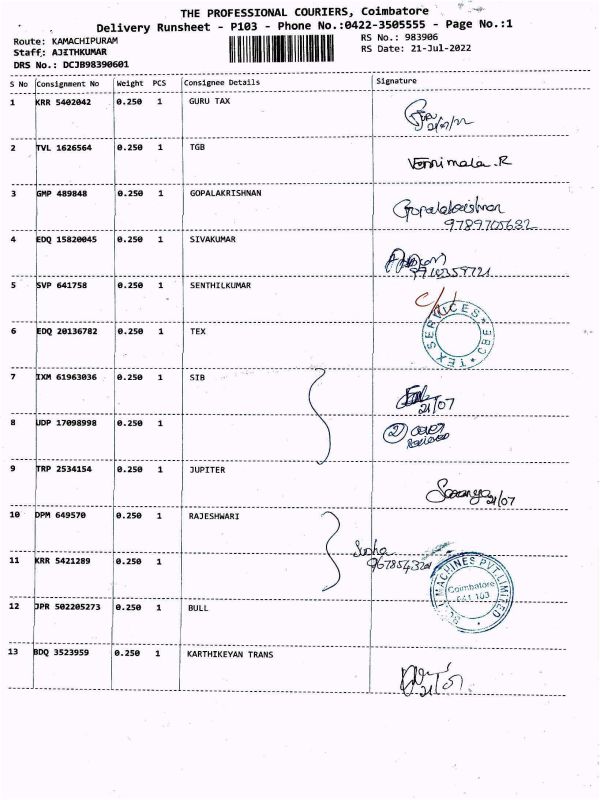 THE PROFESSIONAL COURIERS, Coimbatore
Delivery Runsheet - P103 - Phone No.:0422-3505555 - Page No.:1
Route: KAMACHIPURAM RS No.: 983906
Staff: AJITHKUMAR RS Date: 21-Jul-2022
DRS No.: DCJB98390601
S No Consignment No Weight PCS Consignee Details Signature
1 KRR 5402042 0.250 1 GURU TAX
21/07/22
2 TVL 1626564 0.250 1 TGB
Vennimala.R
3 GMP 489848 0.250 1 GOPALAKRISHNAN
Gopalakrishnan
9789705632
4 EDQ 15820045 0.250 1 SIVAKUMAR
5 SVP 641758 0.250 1 SENTHILKUMAR
C/L
6 EDQ 20136782 0.250 1 TEX
TEX SERVICES * CBEC *
7 IXM 61963036 0.250 1 SIB
21/07
8 UDP 17098998 0.250 1
2 cover
Received
9 TRP 2534154 0.250 1 JUPITER
Saranya 21/07
10 DPM 649570 0.250 1 RAJESHWARI
Susha
11 KRR 5421289 0.250 1
MACHINES PVT. LIMITED
Coimbatore
641 103
12 JPR 502205273 0.250 1 BULL
13 BDQ 3523959 0.250 1 KARTHIKEYAN TRANS
21/07